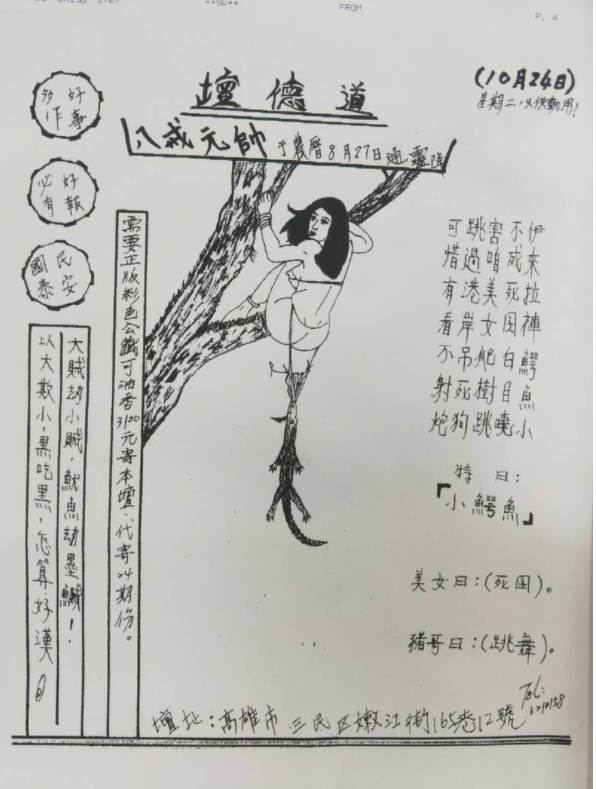 FROM
P. 4
道德壇
(10月24日)
八戒元帥 于農曆8月27日通靈降
好事
多作
好報
必有
民安
國泰
伊來拉褲鱷魚小
不成死囡白目曉
害咱美女爬樹跳
跳過港岸吊死狗
可惜有看不射炮
特曰:
「小鱷魚」
美女曰:(死囡)。
豬哥曰:(跳舞)。
需要正版彩色公籤可油香3100元寄本壇、代寄24期份。
大賊劫小賊,魷魚劫墨鱡!
以大欺小,黑吃黑,怎算好漢。
壇址:高雄市三民区嫩江街165巷12號
Tel: